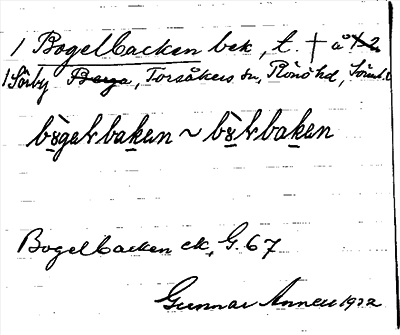 1 Bogelbacken bek, t. † å
1 Sörby Berga, Torsåkers sn, Rönö hd, Söml.
bògəlbakən ~ bòlbakən
Bogelbacken ek, G. 67
Gunnar 1922